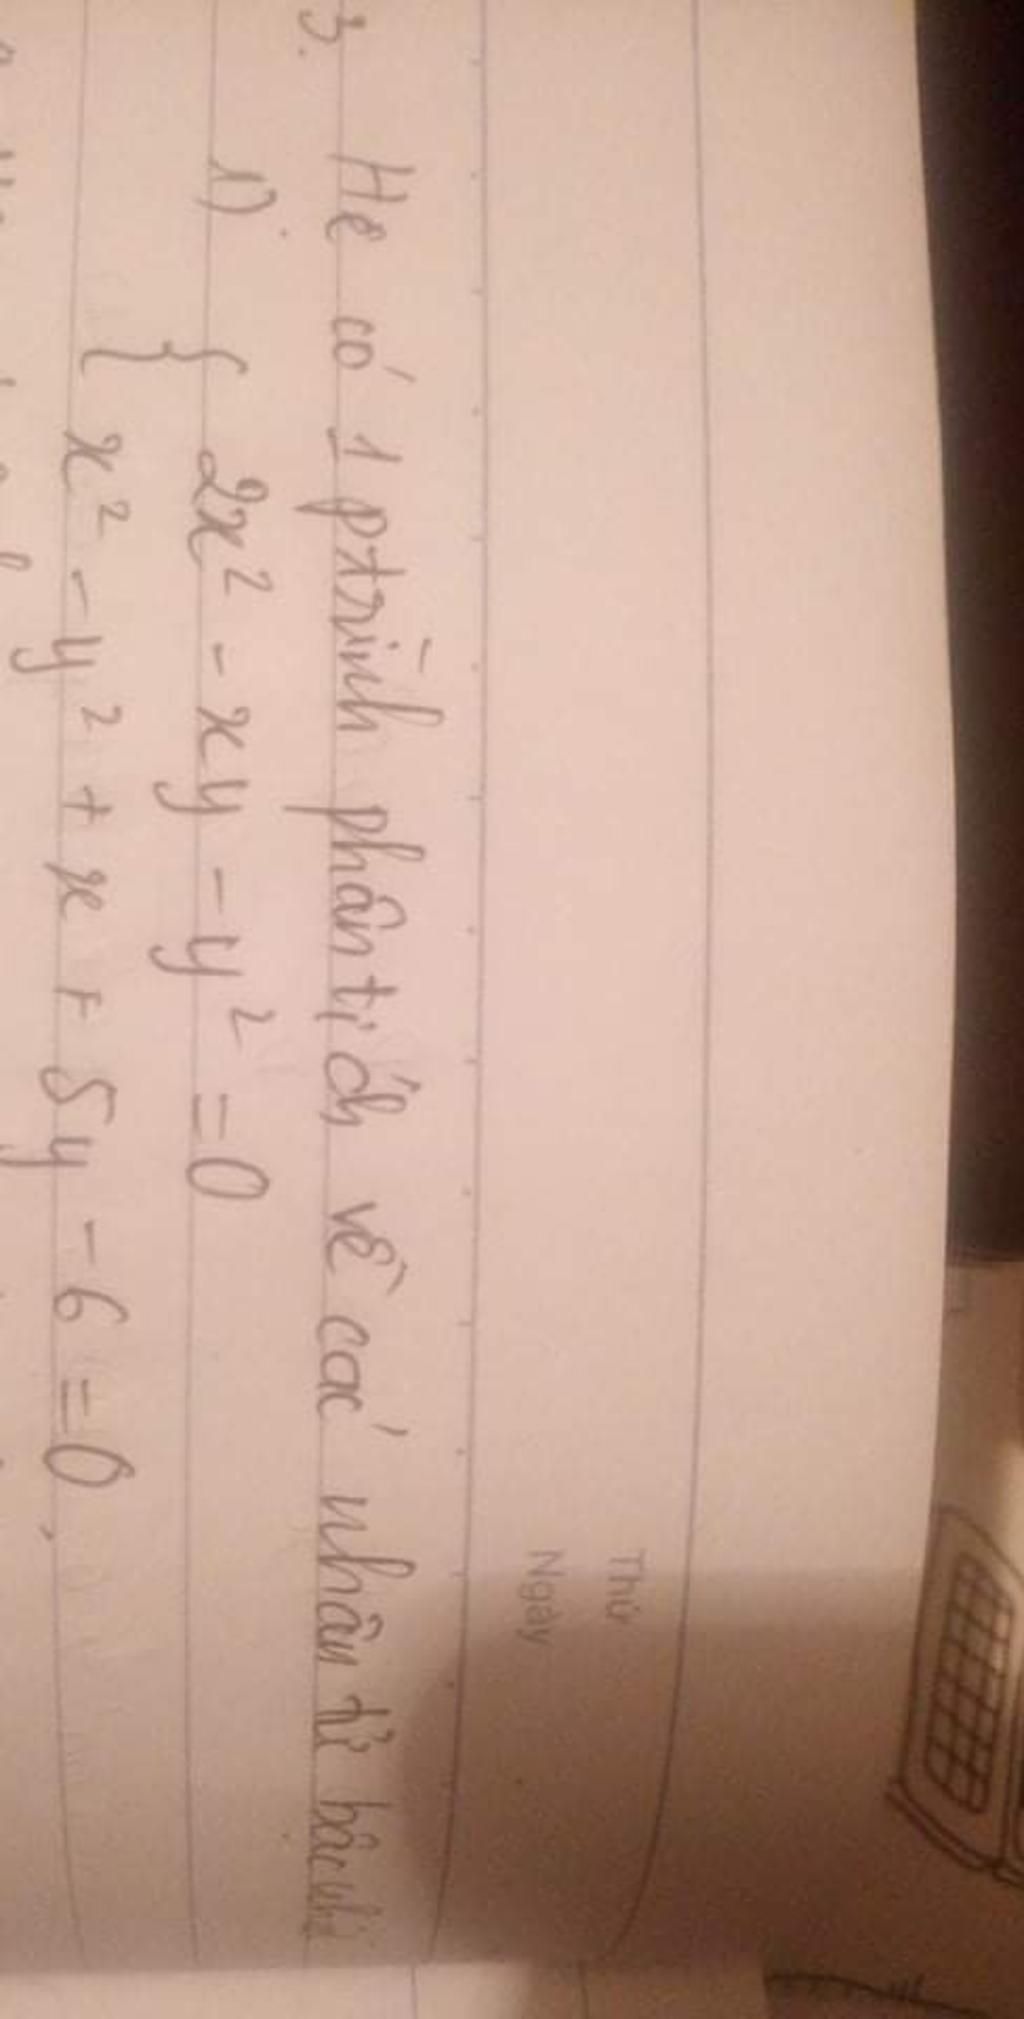 Thứ
Ngày
3. Hệ có 1 ptrình phân tích về các nhân tử bậc
1) { 2x² - xy - y² = 0
x² - y² + x + 5y - 6 = 0